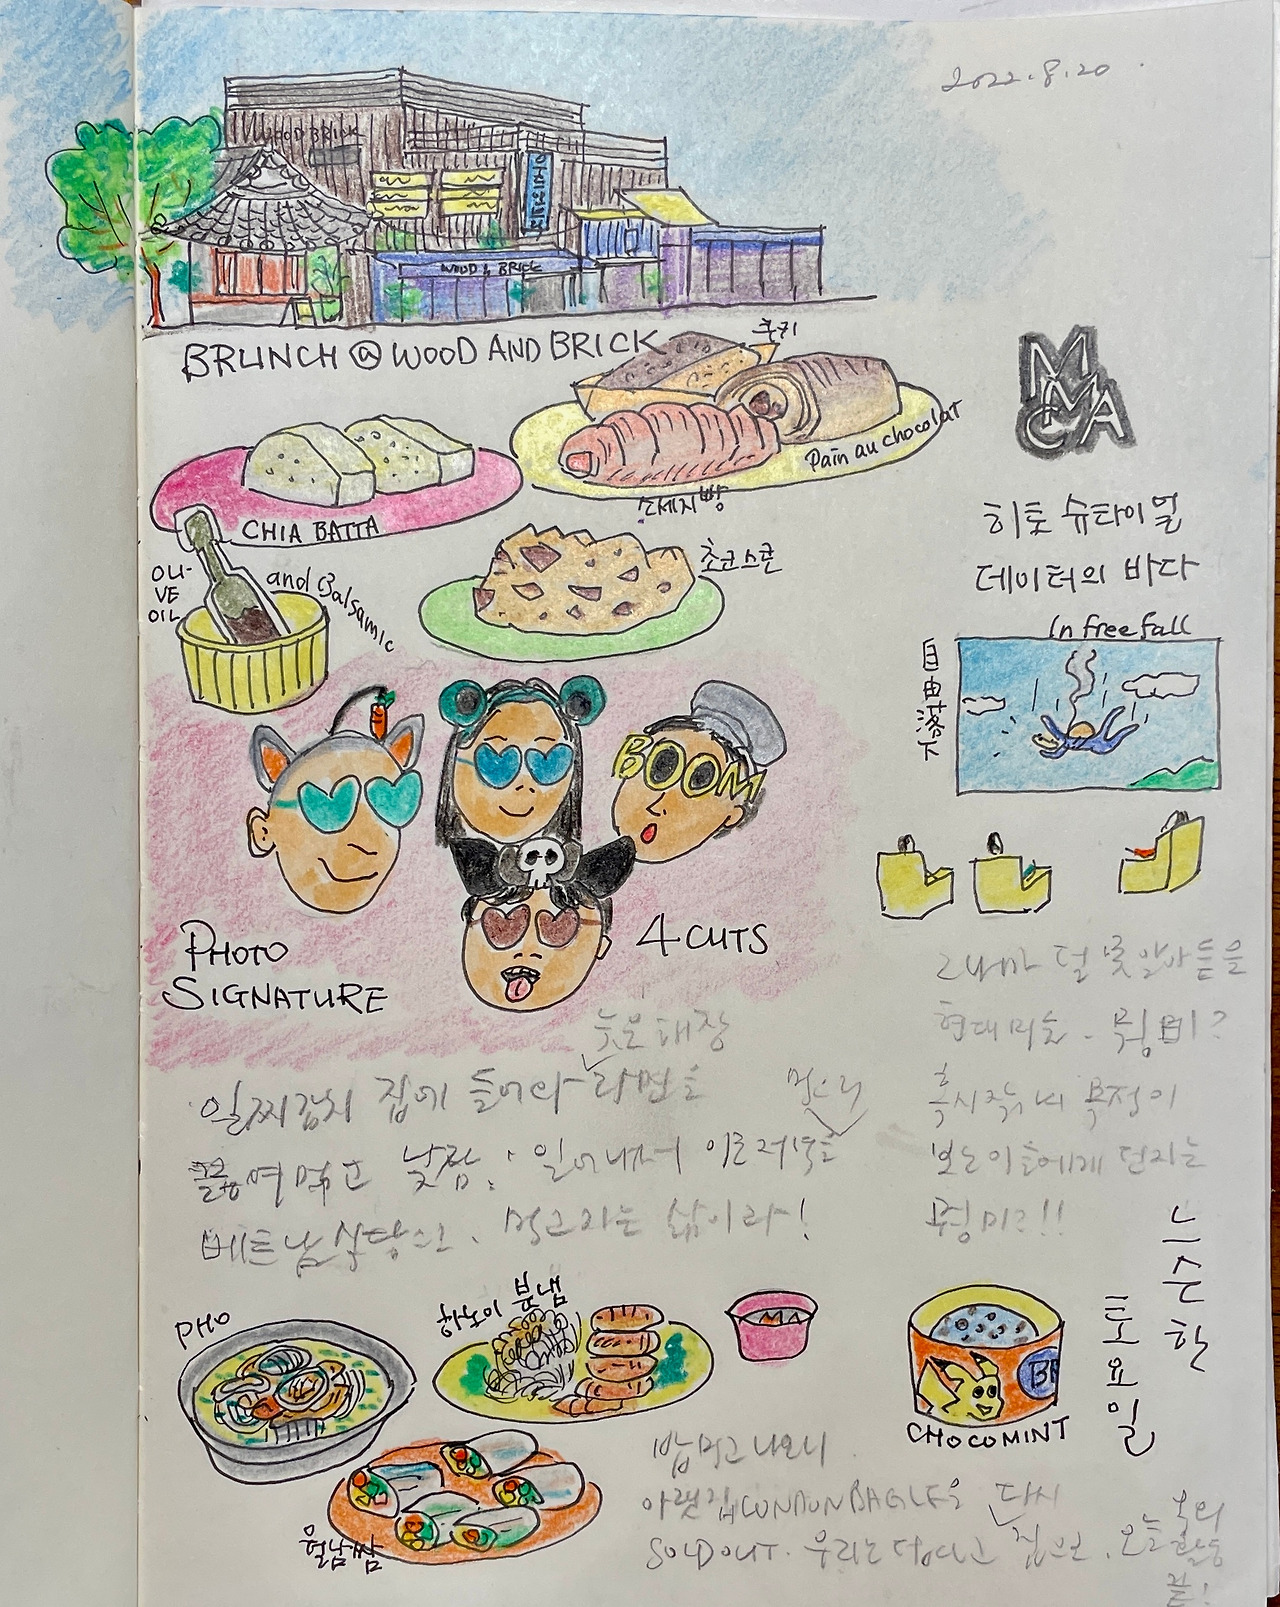 2022.8.20
WOOD BRICK
WOOD & BRICK
BRUNCH @ WOOD AND BRICK
쿠키
Pain au chocolat
소세지빵
CHIA BATTA
OLI-
VE
OIL
and Balsamic
초코스콘
MMCA
히토 슈타이얼
데이터의 바다
In free fall
自由落下
BOOM
PHOTO
SIGNATURE
4 CUTS
그나마 덜 못알아들을
현대미술.
혹시 작가의 목적이
보는이들에게 던지는
일찌감치 집에 들어와 라면을
끓여먹고 낮잠; 일어나서 이른저녁을 먹으러
베트남식당으로. 먹고자는 삶이라!
PHO
하노이 분냄
월남쌈
BR
CHOCOMINT
느슨한
토요일
밥먹고 나오니
아랫집 LONDON BAGLE은 다시
SOLD OUT. 우리는 집으로. 오늘
끝!